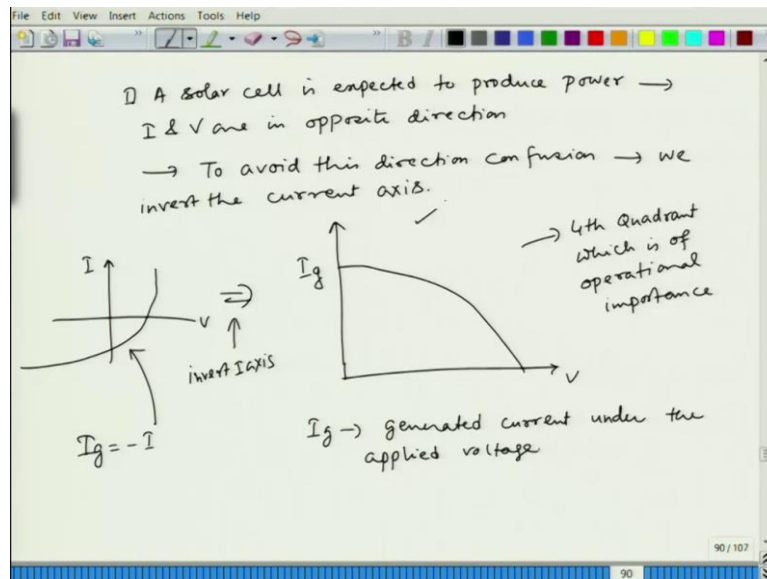 File Edit View Insert Actions Tools Help
B I
1) A solar cell is expected to produce power →
I & V are in opposite direction
→ To avoid this direction confusion → we
invert the current axis.
✓
→ 4th Quadrant
which is of
operational
importance
I
V
⇒
invert I axis
Ig = - I
Ig
V
Ig → generated current under the
applied voltage
90 / 107
90